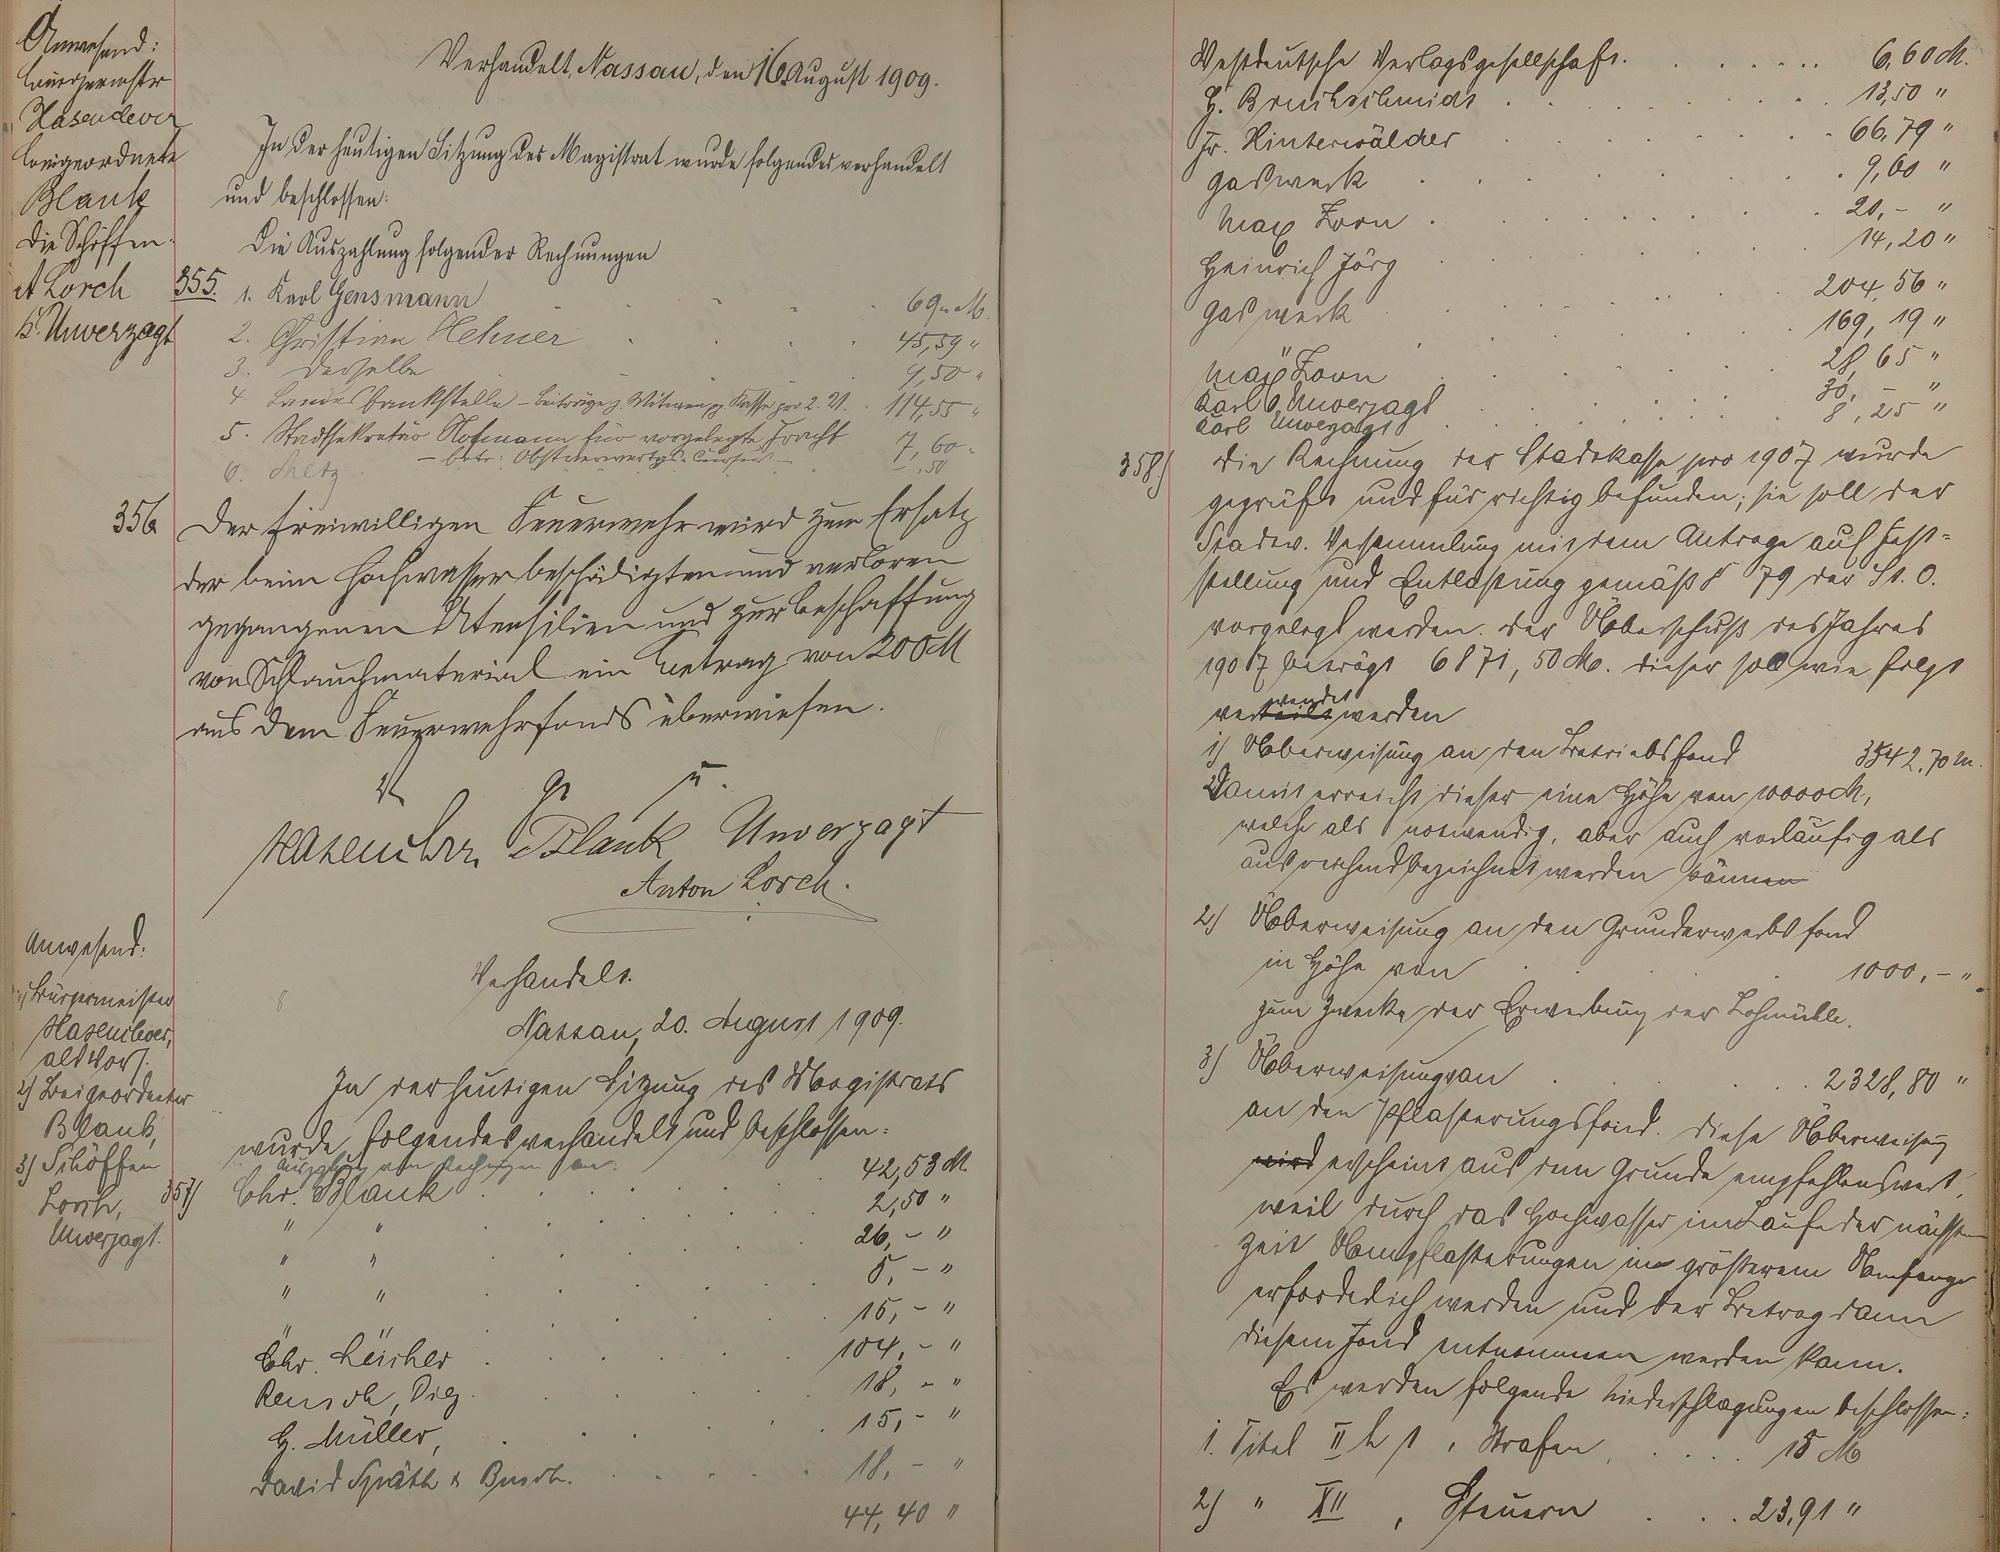 Anwesend:
Bürgermeister
Hasenclever
Beigeordnete
Blank
die Schöffen:
A Lorch
K. Unverzagt
Verhandelt, Nassau, den 16. August 1909.
In der heutigen Sitzung des Magistrat wurde folgendes verhandelt
und beschlossen:
Die Auszahlung folgender Rechnungen
355. 1. Karl Gensmann 69,- M.
2. Christian Hehner 45,59 "
3. derselbe 9,50 "
4. Landesbankstelle - Beiträge z. Witwen pp Kasse pro 2. Vj. 114,55 "
5. Stadtsekretär Hofmann für vorgelegte Fracht 7,60 "
- betr: Obstverwertgs. Cursus -
6. Metz -,50
356 Der freiwilligen Feuerwehr wird zum Ersatz
der beim Hochwasser beschädigten und verloren
gegangenen Utensilien und zur Beschaffung
von Schlauchmaterial ein Betrag von 200 M
aus dem Feuerwehrfonds überwiesen.
V. G. U.
Hasenclever Blank Unverzagt
Anton Lorch.
Anwesend:
1) Bürgermeister
Hasenclever,
als Vors.
2) Beigeordneter
Blank,
3) Schöffen
Lorch,
Unverzagt.
Verhandelt.
Nassau, 20. August 1909.
In der heutigen Sitzung des Magistrats
wurde folgendes verhandelt und beschlossen:
Auszahlung von Rechnungen an:
357) Chr. Blank 42,53 M.
" " 2,50 "
" " 26,- "
" " 5,- "
" " 15,- "
Chr. Leicher 104,- "
Rensch, Diez. 18,- "
H. Müller, 15,- "
David Späth & Busch. 18,- "
44,40 "
Westdeutsche Verlagsgesellschaft. 6,60 M.
H. Bruchschmidt 13,50 "
Fr. Hinterwälder 66,79 "
Gaswerk 9,60 "
Max Zorn 20,- "
Heinrich Jörg 14,20 "
Gaswerk 204,56 "
" 169,19 "
Max Zorn 28,65 "
Karl Unverzagt 30,- "
Karl Unverzagt 8,25 "
358) Die Rechnung der Stadtkasse pro 1907 wurde
geprüft und für richtig befunden; sie soll der
Stadtv. Versammlung mit dem Antrage auf Fest-
stellung und Entlastung gemäß § 79 der St. O.
vorgelegt werden. Der Überschuß des Jahres
1907 beträgt 6871,50 M. Dieser soll wie folgt
verwendet werden
1) Überweisung an den Betriebsfond 3542,70 M.
Damit erreicht dieser eine Höhe von 10000 M,
welche als notwendig, aber auch vorläufig als
ausreichend bezeichnet werden können
2) Überweisung an den Grunderwerbsfond
in Höhe von 1000,- "
zum Zwecke der Erwerbung der Lohmühle.
3) Überweisung von 2328,80 "
an den Pflasterungsfond. Diese Überweisung
wird erscheint aus dem Grunde empfehlenswert,
weil durch das Hochwasser im Laufe der nächsten
Zeit Umpflasterungen in größerem Umfange
erforderlich werden und der Betrag dann
diesem Fond entnommen werden kann.
Es werden folgende Niederschlagungen beschlossen:
1. Titel II b 1, Strafen 15 M
2) " XII, Steuern 23,91 "